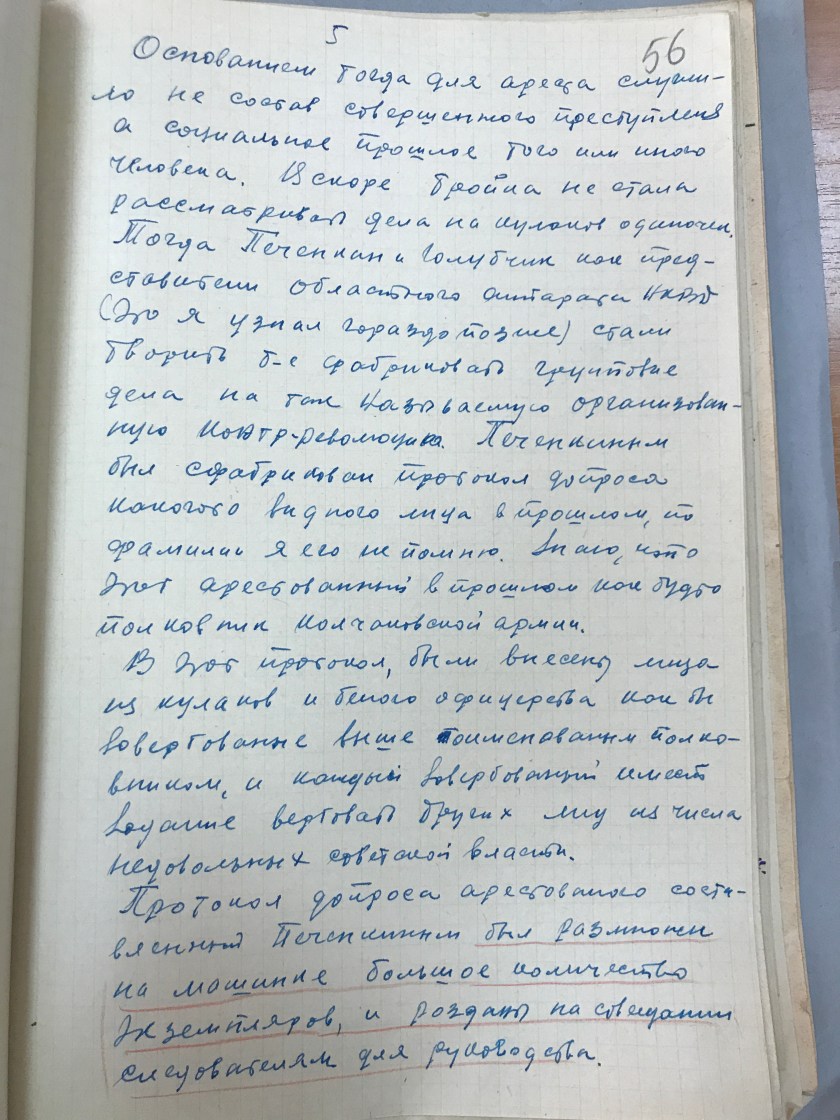 5
56
Основанием тогда для ареста служи-
ло не состав совершенного преступления
а социальное прошлое того или иного
человека. Вскоре тройка не стала
рассматривать дела на кулаков одиночек.
Тогда Печенкин и Голубчик как пред-
ставители областного аппарата НКВД
(Это я узнал гораздо позже) стали
творить т-е фабриковать групповые
дела на так называемую организован-
ную контр-революцию. Печенкиным
был сфабрикован протокол допроса
какогото видного лица в прошлом, по
фамилии я его не помню. Знаю, что
этот арестованный в прошлом как будто
полковник колчаковской армии.
В этот протокол, были внесены лица
из кулаков и белого офицерства как бы
завербованные выше поименованным полко-
вником, и каждый завербованный имеет
задание вербовать других лиц из числа
недовольных советской власти.
Протокол допроса арестованого соста-
вленный Печенкиным был размножен
на машинке большое количество
экземпляров, и розданы на совещании
следователям для руководства.